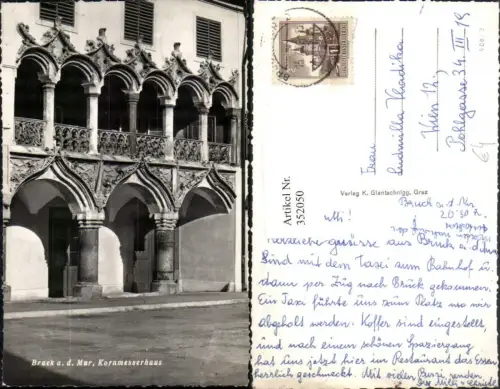 Bruck a. d. Mur, Kornmesserhaus
Artikel Nr.
352050
Verlag K. Gientschnigg, Graz
Frau
Ludmilla
Wien 12.)
Pohlgasse 34. III 18
Bruck a. d. Mur
Mutti!
Herzliche Grüsse aus Bruck a. d. Mur
Sind mit dem Taxi zum Bahnhof u.
dann per Zug nach Bruck gekommen.
Ein Taxi führte uns zum Platz wo wir
abgeholt werden. Koffer sind eingestellt,
und nach einem schönen Spaziergang
hat uns jetzt hier im Restaurant das Essen
herrlich geschmeckt. Mit vielen Bussi senden